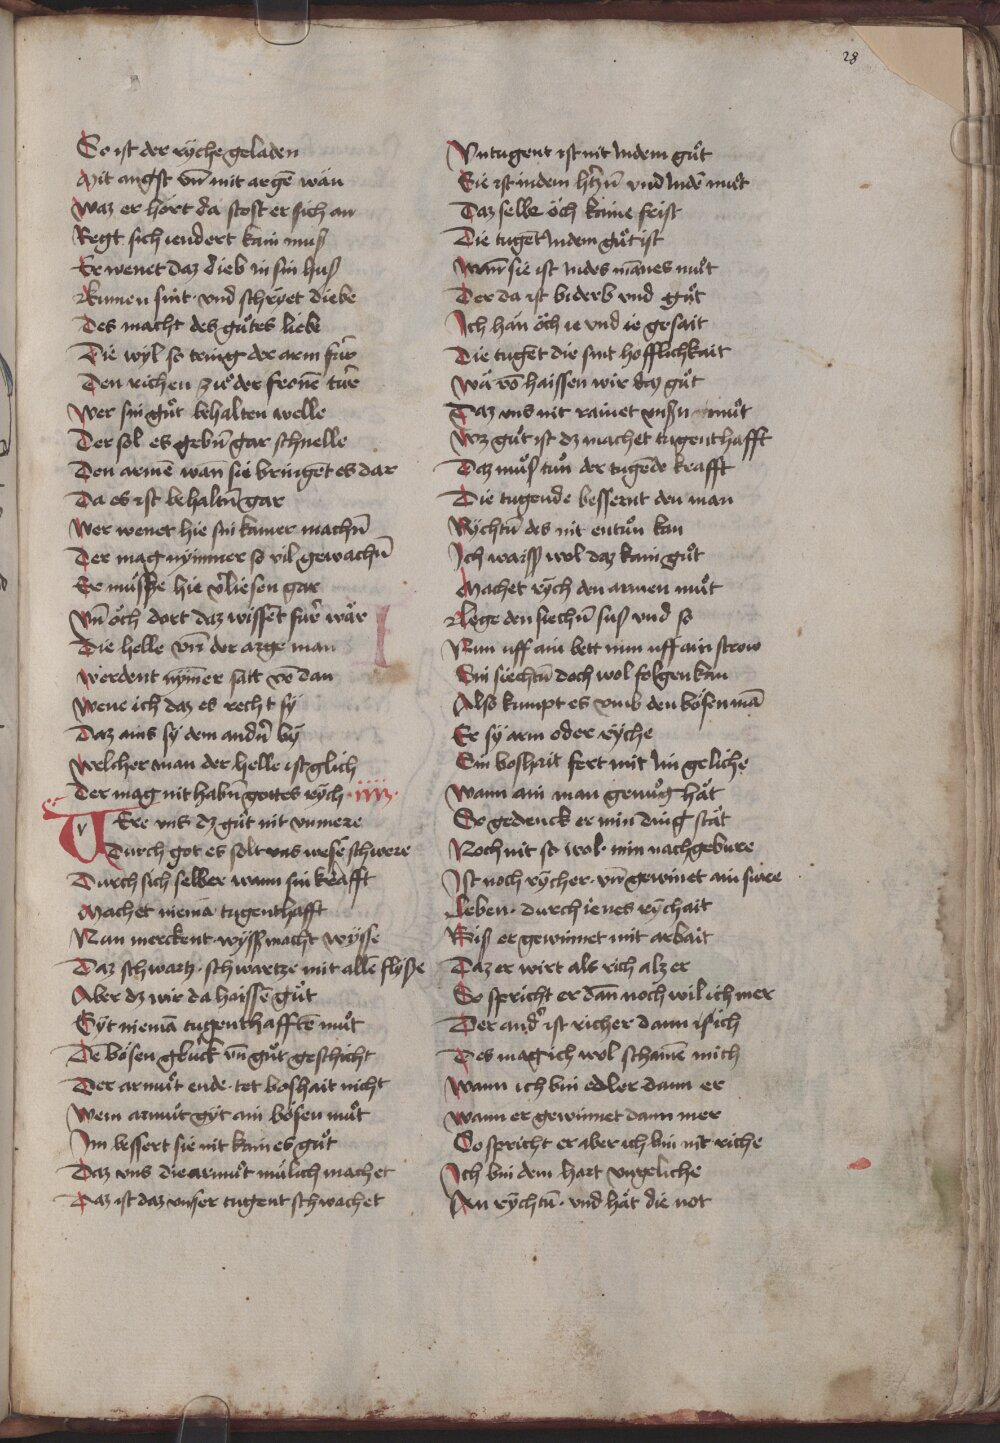 28
So ist der rÿche geladen
Mit angst vn̄ mit argē wän
Waz er hört da stost er sich an
Regt sich iendert kain mus
Er wenet daz dieb in sin hus
Kumen sint · vnd schrÿet diebe
Des macht des gůtes liebe
Die wyl so tring der arm für
Den richen zů der fronē tür
Wer sin gůt behalten welle
Der sol es gebn̄ gar schnelle
Den armē wan sie bringet es dar
Da es ist behaltn̄ gar
Wer wenet hie sin kamer machn̄
Der mag nÿmmer so vil gewachn̄
Er müsse hie v̾liesen gar
Vn̄ öch dort daz wissēt für wär
Die helle vn̄ der arge man
Werdent nÿm̄er satt vō dan
Wene ich daz es recht sÿ
Daz ains sÿ dem andn̄ bÿ
Welcher man der helle ist glich
Der mag nit habn̄ gottes rÿch · iiij ·
Were vns dz gůt nit vnmere
Durch got es solt vns wesē schwere
Durch sich selber wann sin krafft
Machet niemā tugenthafft
Nun merckent · wÿss macht wÿsse
Daz schwartz · schwartze mit allē flÿsse
Aber dz wir da haissē gůt
Gÿt niemā tugenthafftē můt
De bösen glück vn̄ gůt geschicht
Der armůt ende · tet boshait nicht
Wem armůt gÿt ain bösen můt
Im bessert sie nit kaines gůt
Daz vns die armůt mälich machet
Daz ist daz vnser tugent schwachet
Vntugent ist nit Indem gůt
Sie ist indem htzn̄ vnd Indē můt
Daz selbe öch kaine frist
Die tugēt Indem gůt ist
Wann̄ sie ist Indes mānes můt
Der da ist biderb vnd gůt
Ich han öch ie vnd ie gesait
Die tugēt die sint hofflichkait
Wa vō haissen wir daz gůt
Daz vns nit rainet vnsn̄ můt
Wz gůt ist dz machet tugenthafft
Daz můs tůn der tugēde krafft
Die tugende bessernt den man
Rÿchtū des nit entůn kan
Ich waiss wol daz kain gůt
Machet rÿch den armen můt
Lege den siechn̄ sus vnd so
Nun uff ain bett nun uff ain strow
Sin siechtū doch wol folgen kan
Also kumpt es vmb den bösen mā
Er sÿ arm oder rÿche
Sin boshait fert mit Im geliche
Wann ain man genůg hät
So gedenck er min ding stät
Noch nit so wol · min nachgebure
Ist noch rÿcher · vn̄ gewinet ain sure
Leben · durch ienes rÿchait
Bis er gewinnet mit arbait
Daz er wirt als rich alz er
So spricht er dān noch wil ich mer
Der and̾ ist richer dann is ich
Des mag ich wol schamē mich
Wann ich bin edler dann er
Wann er gewinnet dann mer
So spricht er aber ich bin nit riche
Ich bin dem hart vngeliche
An rÿchtū · vnd hät die not